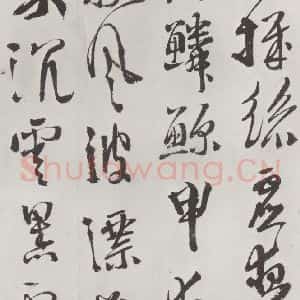 機絲虛夜
鱗鯨甲
風波漂
沉雲黑
Shufawang.CN